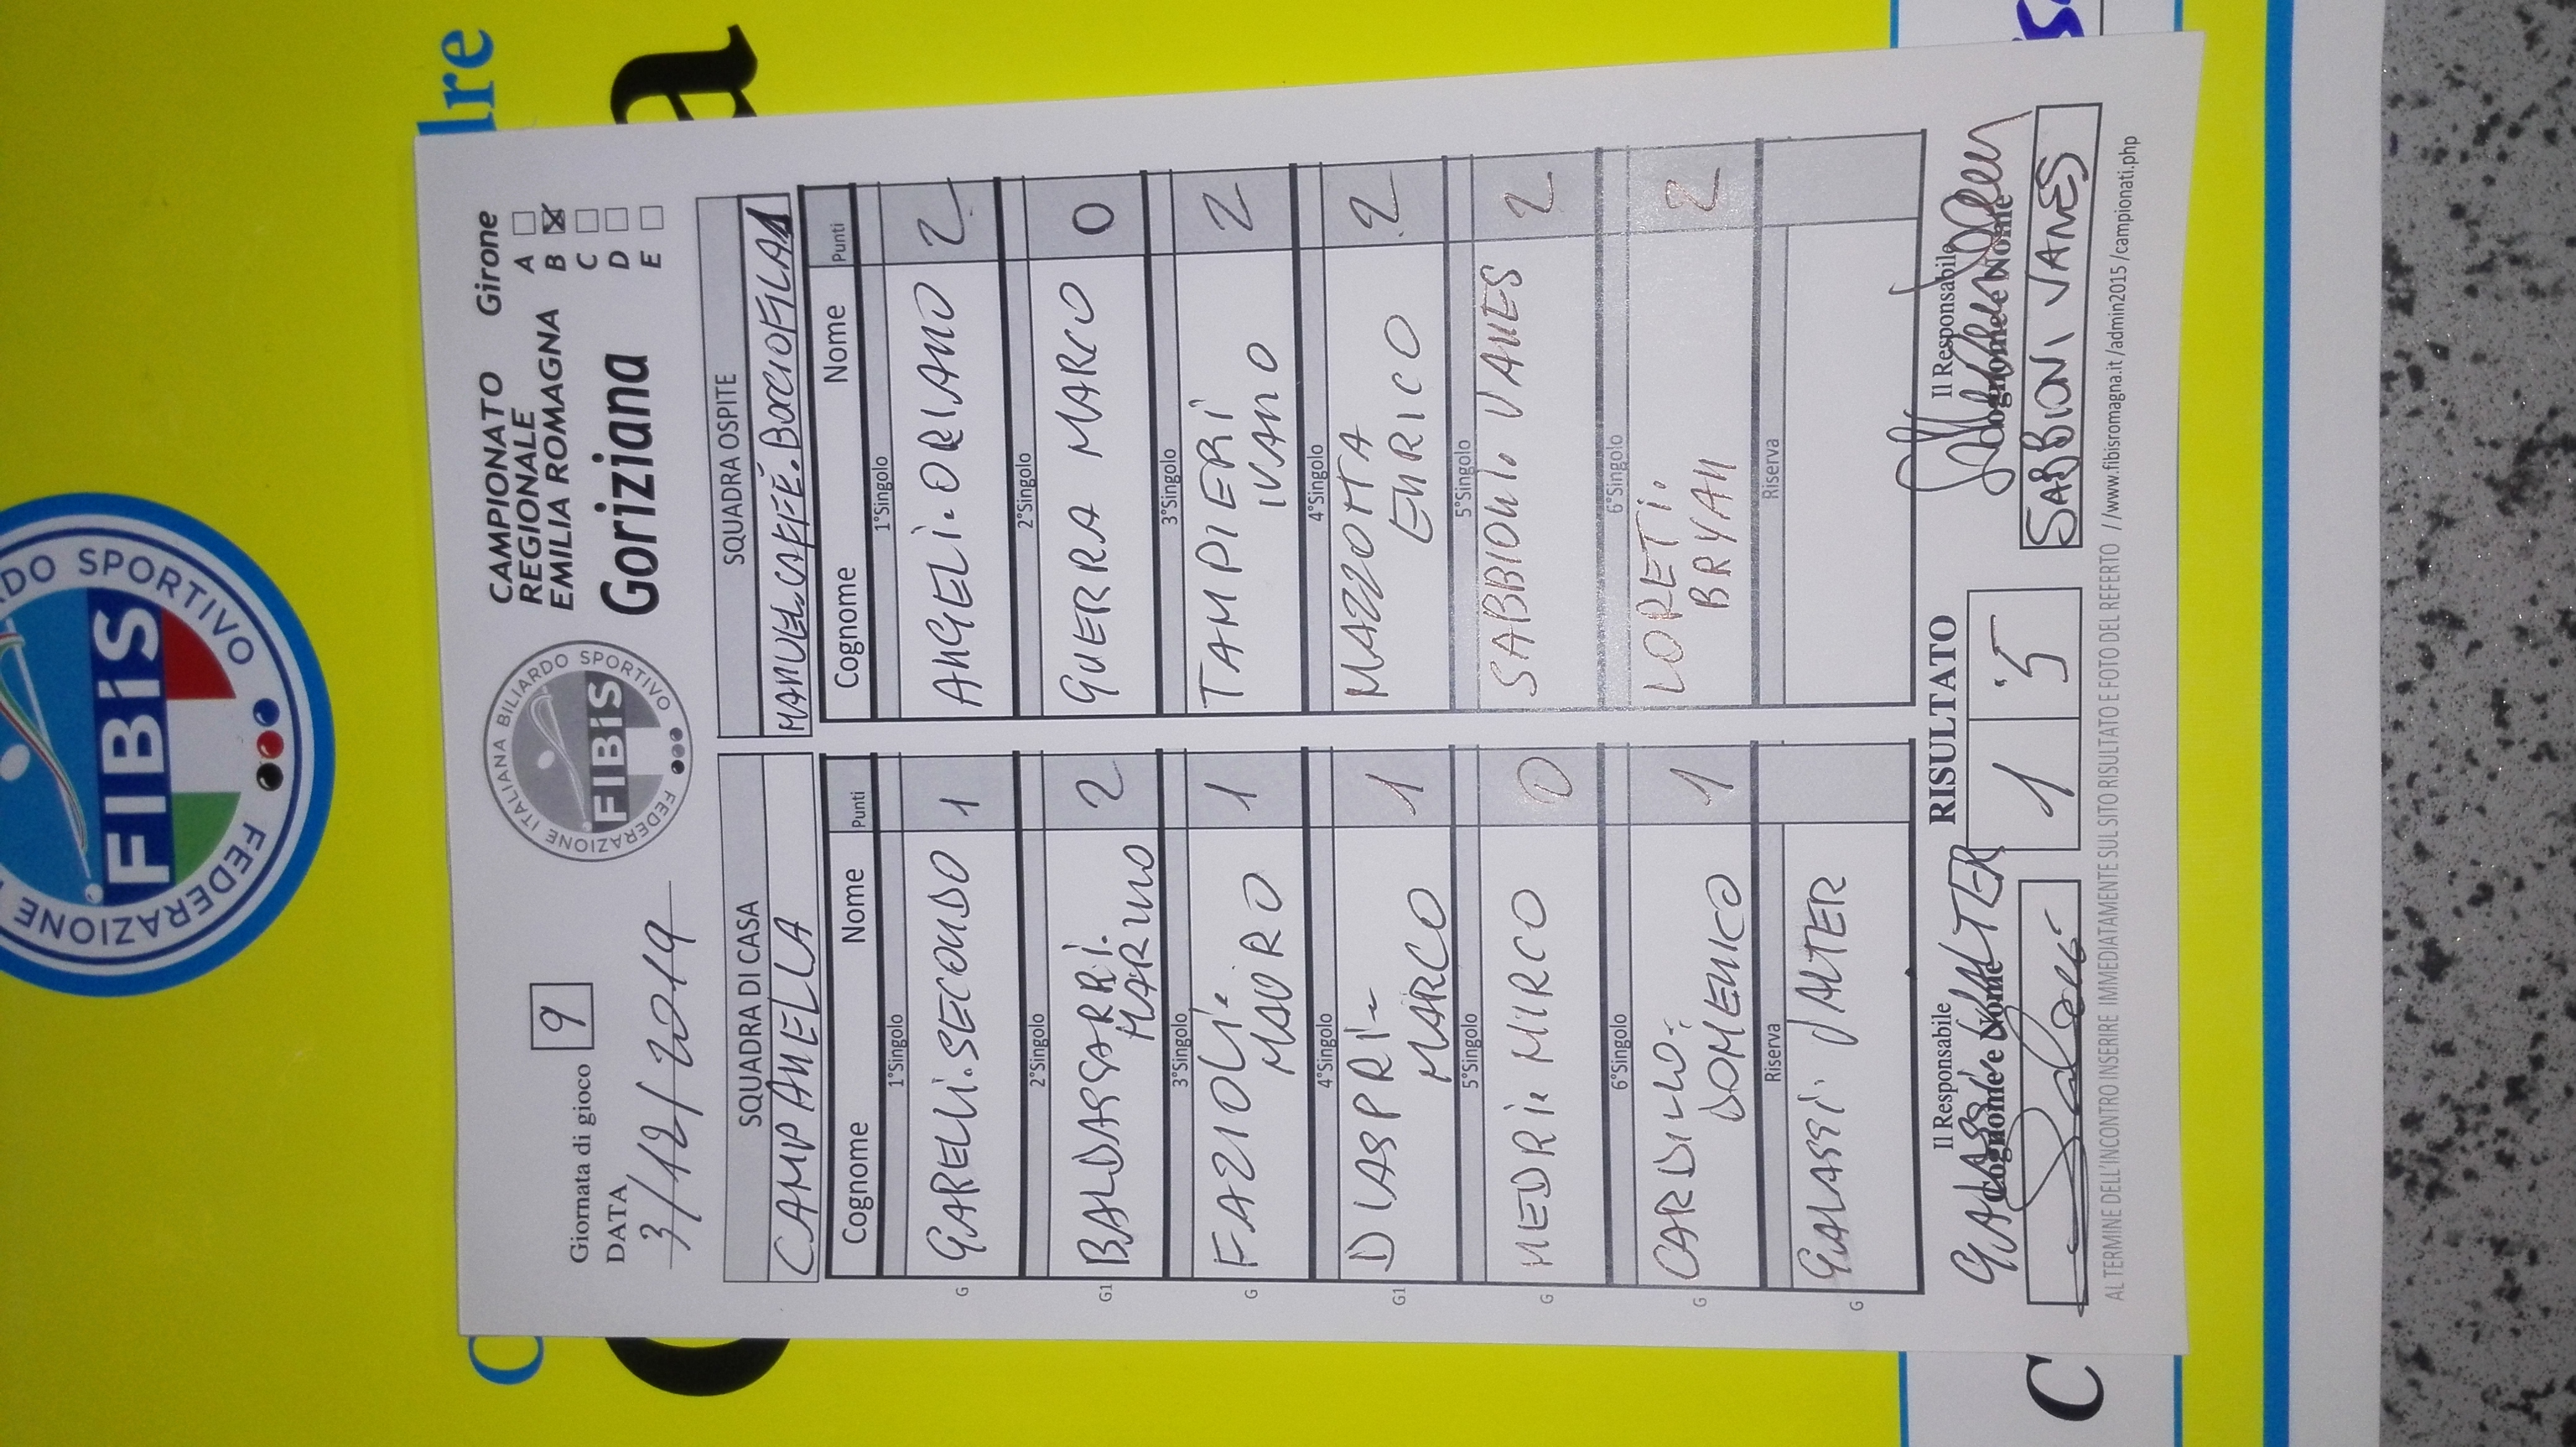 FEDERAZIONE ITALIANA BILIARDO SPORTIVO
FIBiS
CAMPIONATO
REGIONALE
EMILIA ROMAGNA
Goriziana
Girone
A
B
C
D
E
Giornata di gioco 9
DATA
3/12/2019
SQUADRA DI CASA
CAMPANELLA
Cognome Nome Punti
1°Singolo
G GARELLI. SECONDO 1
2°Singolo
G1 BALDASSARRI. MARINO 2
3°Singolo
G FAZIOLI. MAURO 1
4°Singolo
G1 DIASPRI- MARCO 1
5°Singolo
G MEDRI. MIRCO 0
6°Singolo
G CARDILLO- DOMENICO 1
Riserva
G GALASSI. VALTER
SQUADRA OSPITE
MANUEL CAFFÈ. BOCCIOFILA 1
Cognome Nome Punti
1°Singolo
ANGELI. ORIANO 2
2°Singolo
GUERRA MARCO 0
3°Singolo
TAMPIERI IVANO 2
4°Singolo
MAZZOTTA ENRICO 2
5°Singolo
SABBIONI. VANES 2
6°Singolo
LORETI. BRYAN 2
Riserva
Il Responsabile
Cognome e Nome
GALASSI VALTER
RISULTATO
1 5
Il Responsabile
Cognome e Nome
SABBIONI VANES
AL TERMINE DELL'INCONTRO INSERIRE IMMEDIATAMENTE SUL SITO RISULTATO E FOTO DEL REFERTO //www.fibisromagna.it/admin2015/campionati.php
FIBiS
FEDERAZIONE
SPORTIVO